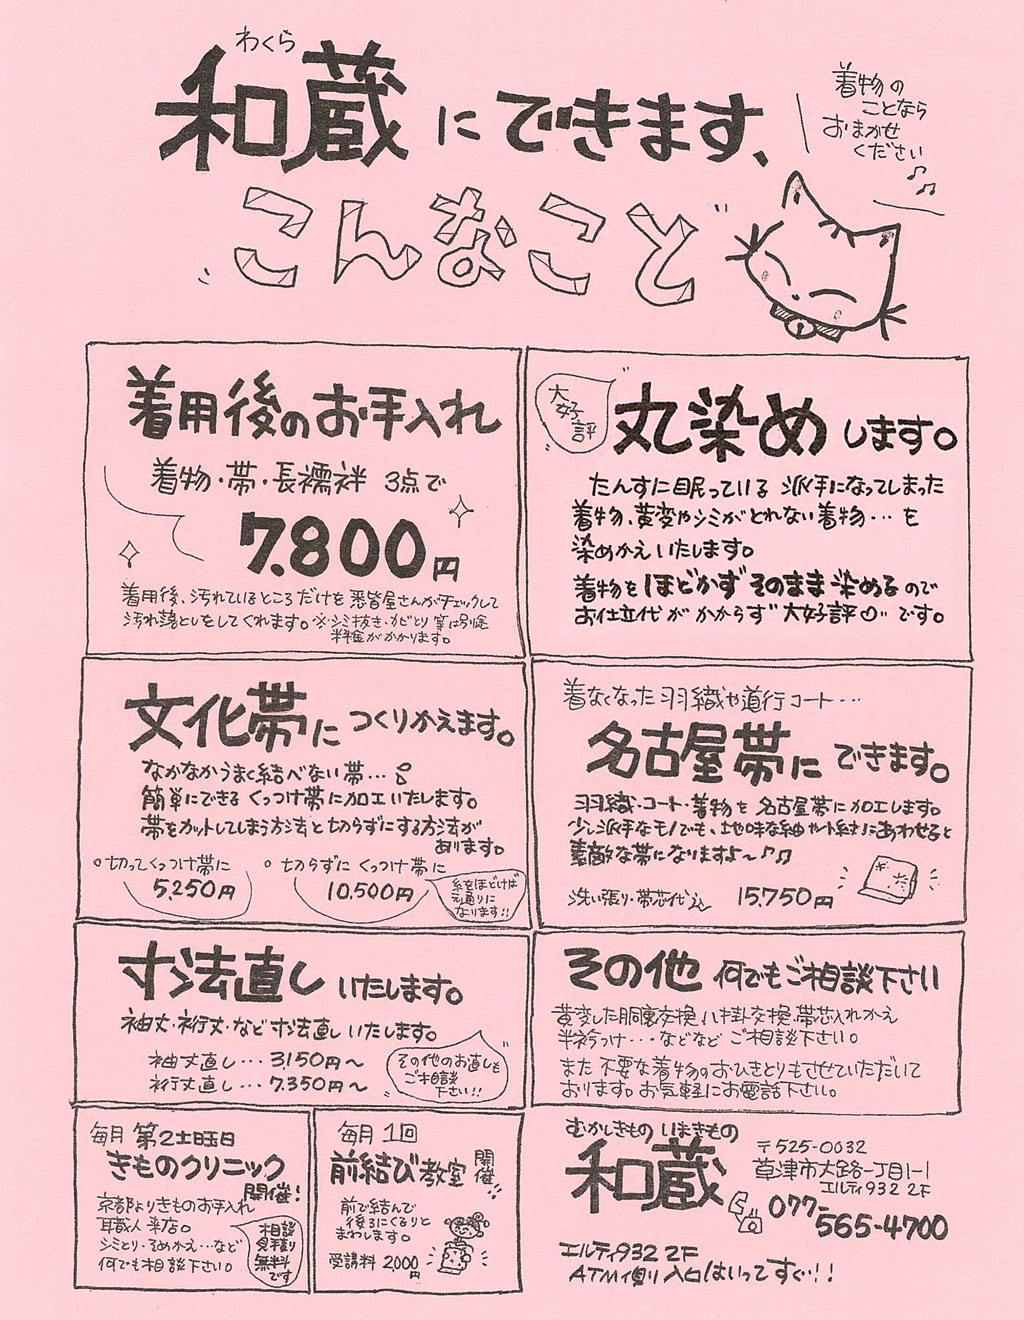 わくら
和蔵にできます、
こんなこと
着物の
ことなら
おまかせ
ください
着用後のお手入れ
着物・帯・長襦袢 3点で
7.800円
着用後、汚れているところだけを悉皆屋さんがチェックして
汚れ落としをしてくれます。※シミ抜き・カビとり等は別途
料金がかかります。
大好評
丸染めします。
たんすに眠っている 派手になってしまった
着物、黄変やシミがとれない着物…を
染めかえいたします。
着物をほどかずそのまま染めるので
お仕立代がかからず"大好評"です。
文化帯につくりかえます。
なかなかうまく結べない帯…
簡単にできる くっつけ帯に加工いたします。
帯をカットしてしまう方法と切らずにする方法が
あります。
○切ってくっつけ帯に
5,250円
○切らずにくっつけ帯に
10,500円
糸をほどけば
元通りに
なります!!
着なくなった羽織や道行コート…
名古屋帯にできます。
羽織・コート・着物を名古屋帯に加工します。
少し派手なモノでも、地味な紬や小紋にあわせると
素敵な帯になりますよ〜♪♫
洗い張り・帯芯代込 15,750円
寸法直しいたします。
袖丈・裄丈・など寸法直しいたします。
袖丈直し…3,150円〜
裄丈直し…7,350円〜
その他のお直しも
ご相談
下さい!!
その他 何でもご相談下さい
黄変した胴裏交換、八掛交換・帯芯入れかえ
半衿つけ…などなど ご相談下さい。
また 不要な着物のおひきとりもさせていただいて
おります。お気軽にお電話下さい。
毎月 第2土曜日
きものクリニック
開催!
京都よりきものお手入れ
職人来店。
シミとり・そめかえ…など
何でも相談下さい。
相談
見積り
無料
です
毎月1回
前結び教室
開催!!
前で結んで
後ろにくるりと
まわします。
受講料 2,000円
むかしきもの いまきもの
和蔵
〒525-0032
草津市大路一丁目1-1
エルティ932 2F
077-
565-4700
エルティ932 2F
ATM側り入口はいってすぐ!!